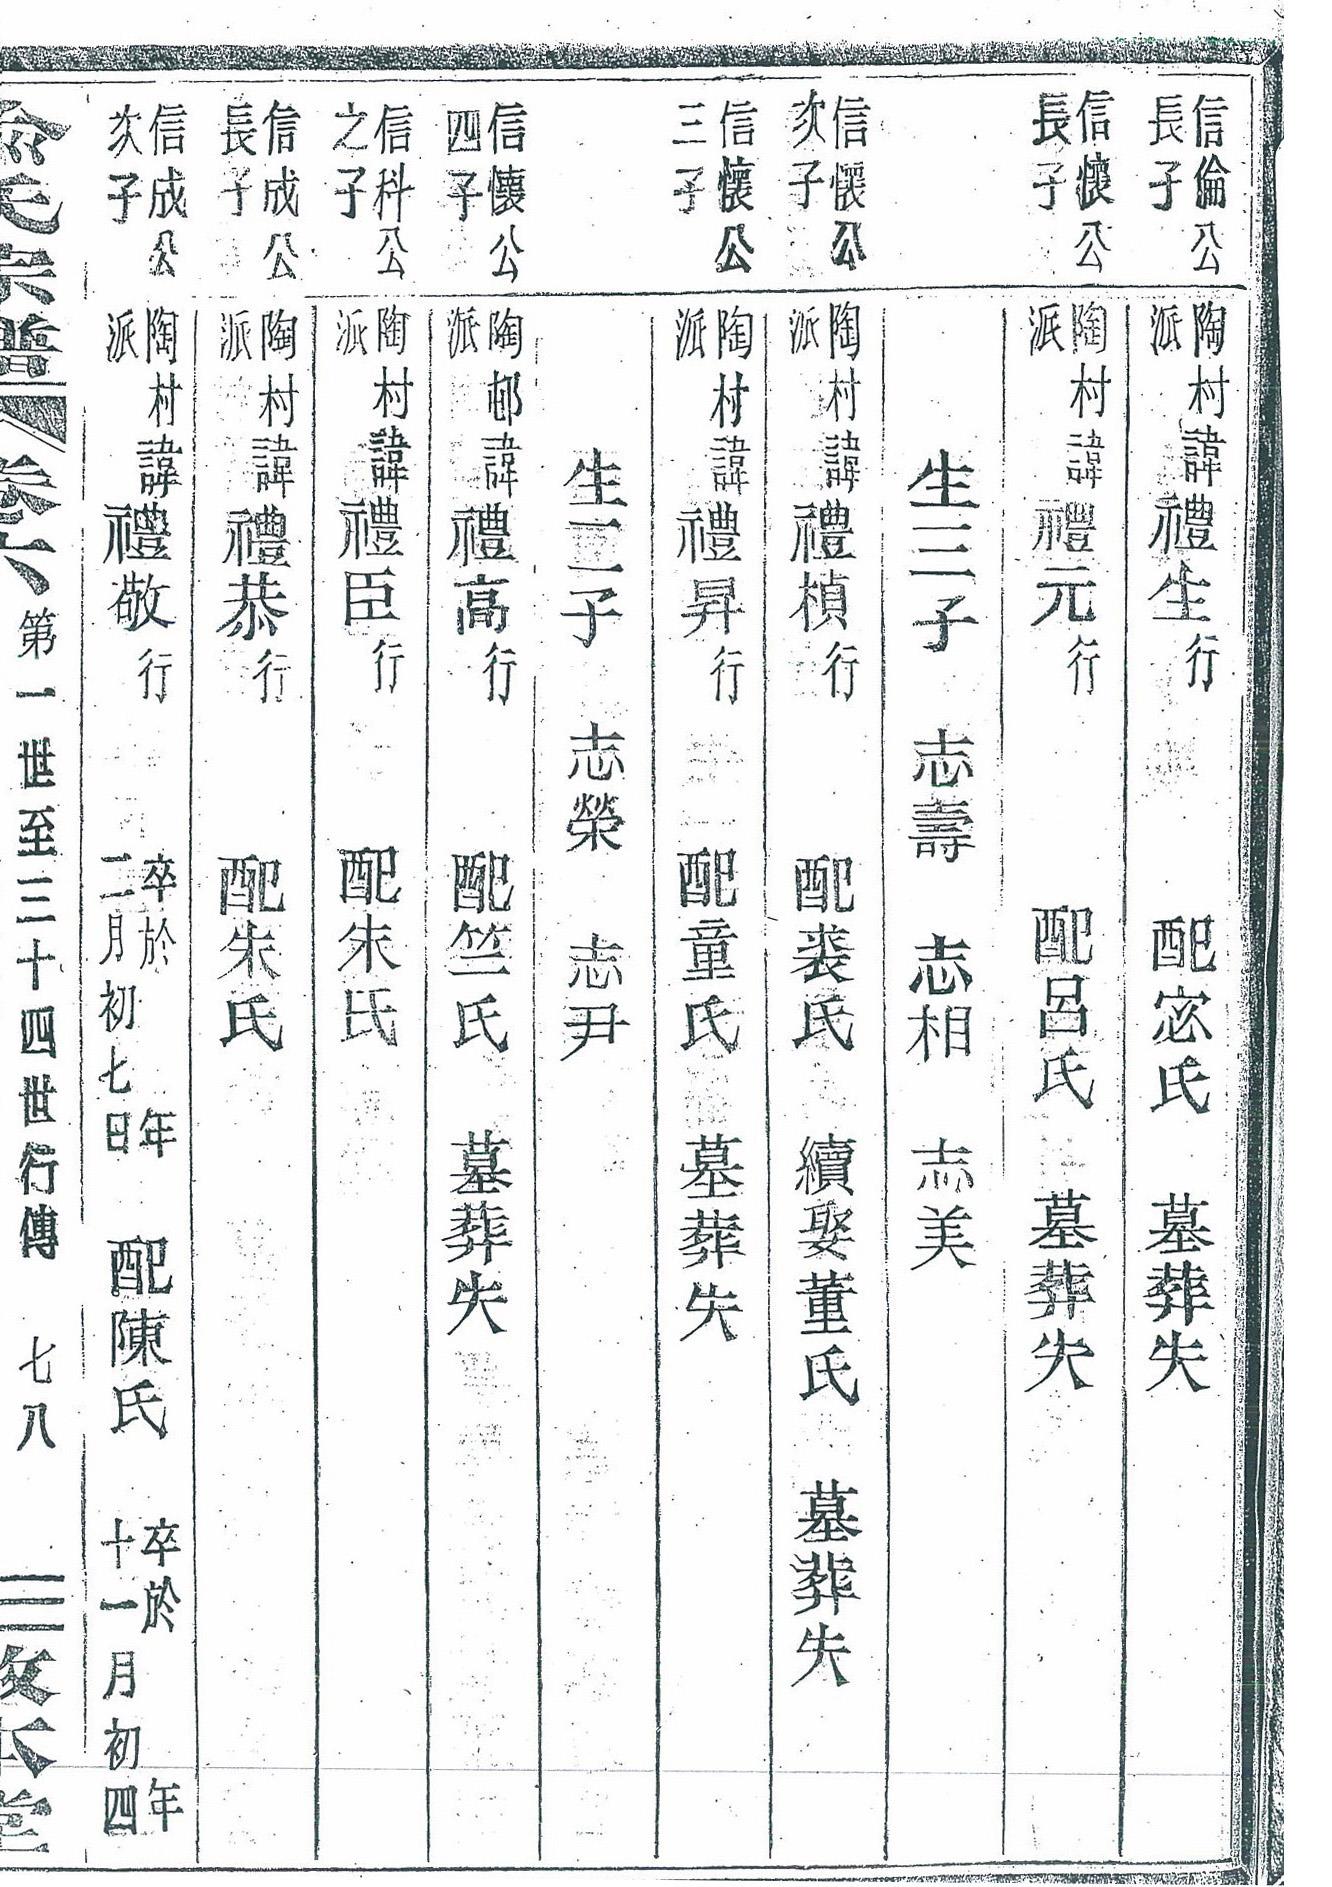 信倫公長子 陶村派諱禮生行 配宓氏 墓葬失
信懷公長子 陶村派諱禮元行 配呂氏 墓葬失
生三子 志壽 志相 志美
信懷公次子 陶村派諱禮楨行 配裘氏 續娶董氏 墓葬失
信懷公三子 陶村派諱禮昇行 配童氏 墓葬失
生二子 志榮 志尹
信懷公四子 陶邨派諱禮高行 配竺氏 墓葬失
信科公之子 陶村派諱禮臣行 配朱氏
信成公長子 陶村派諱禮恭行 配朱氏
信成公次子 陶村派諱禮敬行 卒於 年二月初七日 配陳氏 卒於 年十一月初四
氏宗譜 卷六 第一世至三十四世行傳 七八 三 本堂